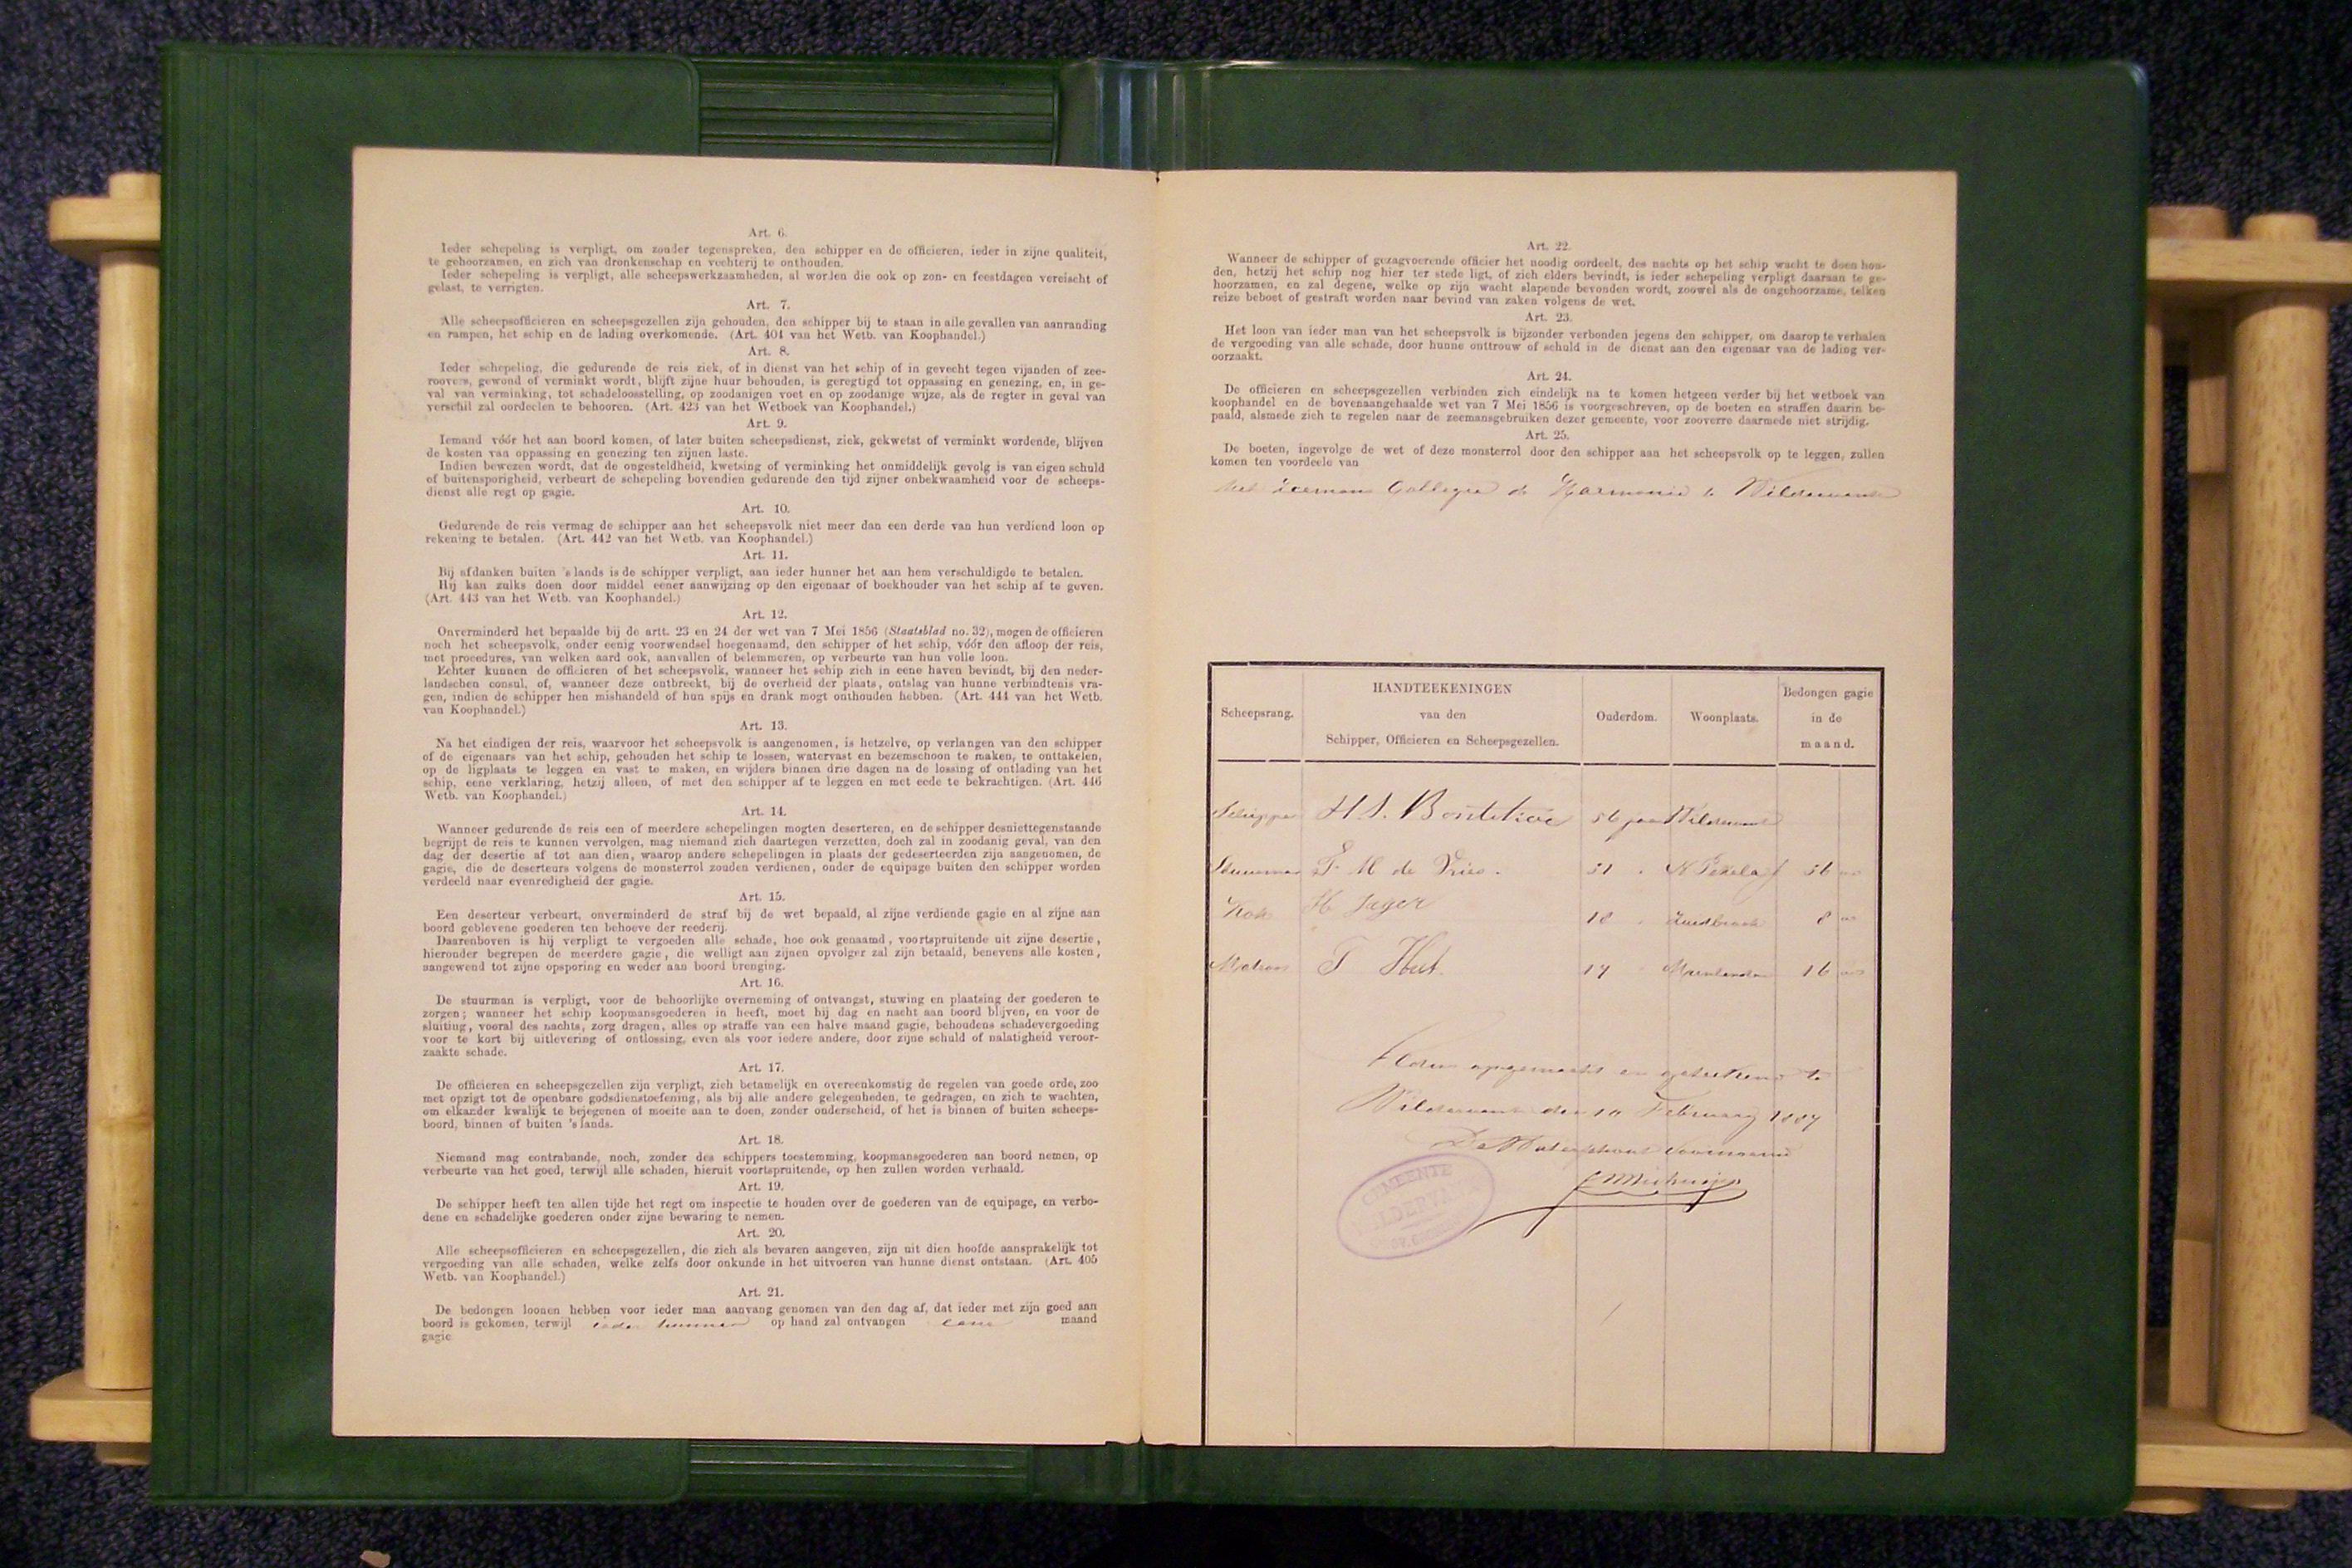 Art. 6.
Ieder schepeling is verpligt, om zonder tegenspreken, den schipper en de officieren, ieder in zijne qualiteit,
te gehoorzamen, en zich van dronkenschap en vechterij te onthouden.
Ieder schepeling is verpligt, alle scheepswerkzaamheden, al worden die ook op zon- en feestdagen vereischt of
gelast, te verrigten.
Art. 7.
Alle scheepsofficieren en scheepsgezellen zijn gehouden, den schipper bij te staan in alle gevallen van aanranding
en rampen, het schip en de lading overkomende. (Art. 404 van het Wetb. van Koophandel.)
Art. 8.
Ieder schepeling, die gedurende de reis ziek, of in dienst van het schip of in gevecht tegen vijanden of zee-
roovers, gewond of verminkt wordt, blijft zijne huur behouden, is geregtigd tot oppassing en genezing, en, in ge-
val van verminking, tot schadeloosstelling, op zoodanigen voet en op zoodanige wijze, als de regter in geval van
verschil zal oordeelen te behooren. (Art. 423 van het Wetboek van Koophandel.)
Art. 9.
Iemand vóór het aan boord komen, of later buiten scheepsdienst, ziek, gekwetst of verminkt wordende, blijven
de kosten van oppassing en genezing ten zijnen laste.
Indien bewezen wordt, dat de ongesteldheid, kwetsing of verminking het onmiddelijk gevolg is van eigen schuld
of buitensporigheid, verbeurt de schepeling bovendien gedurende den tijd zijner onbekwaamheid voor de scheeps-
dienst alle regt op gagie.
Art. 10.
Gedurende de reis vermag de schipper aan het scheepsvolk niet meer dan een derde van hun verdiend loon op
rekening te betalen. (Art. 442 van het Wetb. van Koophandel.)
Art. 11.
Bij afdanken buiten 's lands is de schipper verpligt, aan ieder hunner het aan hem verschuldigde te betalen.
Hij kan zulks doen door middel eener aanwijzing op den eigenaar of boekhouder van het schip af te geven.
(Art. 443 van het Wetb. van Koophandel.)
Art. 12.
Onverminderd het bepaalde bij de artt. 23 en 24 der wet van 7 Mei 1856 (Staatsblad no. 32), mogen de officieren
noch het scheepsvolk, onder eenig voorwendsel hoegenaamd, den schipper of het schip, vóór den afloop der reis,
met procedures, van welken aard ook, aanvallen of belemmeren, op verbeurte van hun volle loon.
Echter kunnen de officieren of het scheepsvolk, wanneer het schip zich in eene haven bevindt, bij den neder-
landschen consul, of, wanneer deze ontbreekt, bij de overheid der plaats, ontslag van hunne verbindtenis vra-
gen, indien de schipper hen mishandeld of hun spijs en drank mogt onthouden hebben. (Art. 444 van het Wetb.
van Koophandel.)
Art. 13.
Na het eindigen der reis, waarvoor het scheepsvolk is aangenomen, is hetzelve, op verlangen van den schipper
of de eigenaars van het schip, gehouden het schip te lossen, watervast en bezemschoon te maken, te onttakelen,
op de ligplaats te leggen en vast te maken, en wijders binnen drie dagen na de lossing of ontlading van het
schip, eene verklaring, hetzij alleen, of met den schipper af te leggen en met eede te bekrachtigen. (Art. 446
Wetb. van Koophandel.)
Art. 14.
Wanneer gedurende de reis een of meerdere schepelingen mogten deserteren, en de schipper desniettegenstaande
begrijpt de reis te kunnen vervolgen, mag niemand zich daartegen verzetten, doch zal in zoodanig geval, van den
dag der desertie af tot aan dien, waarop andere schepelingen in plaats der gedeserteerden zijn aangenomen, de
gagie, die de deserteurs volgens de monsterrol zouden verdienen, onder de equipage buiten den schipper worden
verdeeld naar evenredigheid der gagie.
Art. 15.
Een deserteur verbeurt, onverminderd de straf bij de wet bepaald, al zijne verdiende gagie en al zijne aan
boord geblevene goederen ten behoeve der reederij.
Daarenboven is hij verpligt te vergoeden alle schade, hoe ook genaamd, voortspruitende uit zijne desertie,
hieronder begrepen de meerdere gagie, die welligt aan zijnen opvolger zal zijn betaald, benevens alle kosten,
aangewend tot zijne opsporing en weder aan boord brenging.
Art. 16.
De stuurman is verpligt, voor de behoorlijke overneming of ontvangst, stuwing en plaatsing der goederen te
zorgen; wanneer het schip koopmansgoederen in heeft, moet hij dag en nacht aan boord blijven, en voor de
sluiting, vooral des nachts, zorg dragen, alles op straffe van een halve maand gagie, behoudens schadevergoeding
voor te kort bij uitlevering of ontlossing, even als voor iedere andere, door zijne schuld of nalatigheid veroor-
zaakte schade.
Art. 17.
De officieren en scheepsgezellen zijn verpligt, zich betamelijk en overeenkomstig de regelen van goede orde, zoo
met opzigt tot de openbare godsdienstoefening, als bij alle andere gelegenheden, te gedragen, en zich te wachten,
om elkander kwalijk te bejegenen of moeite aan te doen, zonder onderscheid, of het is binnen of buiten scheeps-
boord, binnen of buiten 's lands.
Art. 18.
Niemand mag contrabande, noch, zonder des schippers toestemming, koopmansgoederen aan boord nemen, op
verbeurte van het goed, terwijl alle schaden, hieruit voortspruitende, op hen zullen worden verhaald.
Art. 19.
De schipper heeft ten allen tijde het regt om inspectie te houden over de goederen van de equipage, en verbo-
dene en schadelijke goederen onder zijne bewaring te nemen.
Art. 20.
Alle scheepsofficieren en scheepsgezellen, die zich als bevaren aangeven, zijn uit dien hoofde aansprakelijk tot
vergoeding van alle schaden, welke zelfs door onkunde in het uitvoeren van hunne dienst ontstaan. (Art. 405
Wetb. van Koophandel.)
Art. 21.
De bedongen loonen hebben voor ieder man aanvang genomen van den dag af, dat ieder met zijn goed aan
boord is gekomen, terwijl ieder hunner op hand zal ontvangen eene maand
gagie
Art. 22.
Wanneer de schipper of gezagvoerende officier het noodig oordeelt, des nachts op het schip wacht te doen hou-
den, hetzij het schip nog hier ter stede ligt, of zich elders bevindt, is ieder schepeling verpligt daaraan te ge-
hoorzamen, en zal degene, welke op zijn wacht slapende bevonden wordt, zoowel als de ongehoorzame, telken
reize beboet of gestraft worden naar bevind van zaken volgens de wet.
Art. 23.
Het loon van ieder man van het scheepsvolk is bijzonder verbonden jegens den schipper, om daarop te verhalen
de vergoeding van alle schade, door hunne onttrouw of schuld in de dienst aan den eigenaar van de lading ver-
oorzaakt.
Art. 24.
De officieren en scheepsgezellen verbinden zich eindelijk na te komen hetgeen verder bij het wetboek van
koophandel en de bovenaangehaalde wet van 7 Mei 1856 is voorgeschreven, op de boeten en straffen daarin be-
paald, alsmede zich te regelen naar de zeemansgebruiken dezer gemeente, voor zooverre daarmede niet strijdig.
Art. 25.
De boeten, ingevolge de wet of deze monsterrol door den schipper aan het scheepsvolk op te leggen, zullen
komen ten voordeele van
het Zeemans Collegie de Harmonie te Wildervank
Scheepsrang. HANDTEEKENINGEN van den Schipper, Officieren en Scheepsgezellen. Ouderdom. Woonplaats. Bedongen gagie in de maand.
Schipper H S. Bontekoe 56 jaar Wildervank
Stuurman F M de Vries. 51 N Pekela f 56
Kok H Jager 18 Zuidbroek 8
Matroos T Hut. 17 Muntendam 16
Aldus opgemaakt en geteekend te
Wildervank den 10 Februarij 1887
De Waterschout voornoemd
GEMEENTE
WILDERVANK